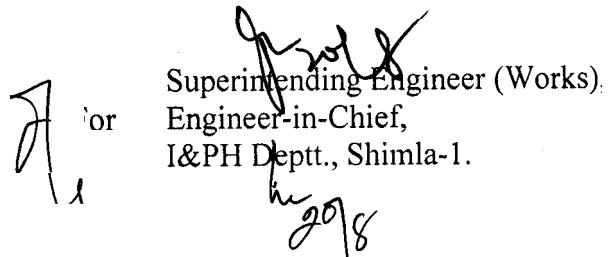 20/8
Superintending Engineer (Works),
For Engineer-in-Chief,
I&PH Deptt., Shimla-1.
20/8